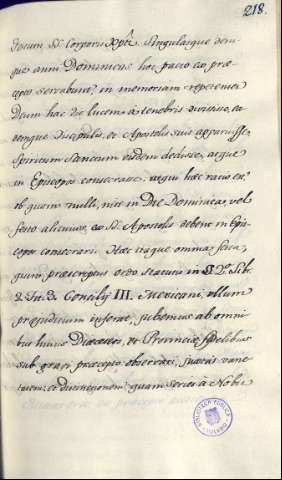 218.
Jesum S. Corporis Xpti. Singulasque deni-
que anni Dominicas hoc pacto ex præ-
cepto servabunt in memoriam repetentes
Deum hac die lucem à tenebris divisisse, ea-
demque Discipulis, et Apostolis suis apparuisse,
Spiritum Sanctum eisdem dedisse, atque
in Episcopos consecrasse, atqui hæc ratio est,
ob quam nulli, nisi in Die Dominica, vel
festo alicuius ex SS. Apostolis debent in Epis-
copos consecrari. Hæc itaque omnia, secu-
quod præscriptus ordo statutus in § 2.º Lib.
2. tit. 3. Concilij III. Mexicani, ullum
præjudicium inferat, jubemus ab omni-
bus huius Diœcesis, et Provinciæ fidelibus
sub gravi præcepto observari, juxta vane-
tatem, et distinctionem, quam series à Nobis
BIBLIOTECA PUBLICA
TOLEDO